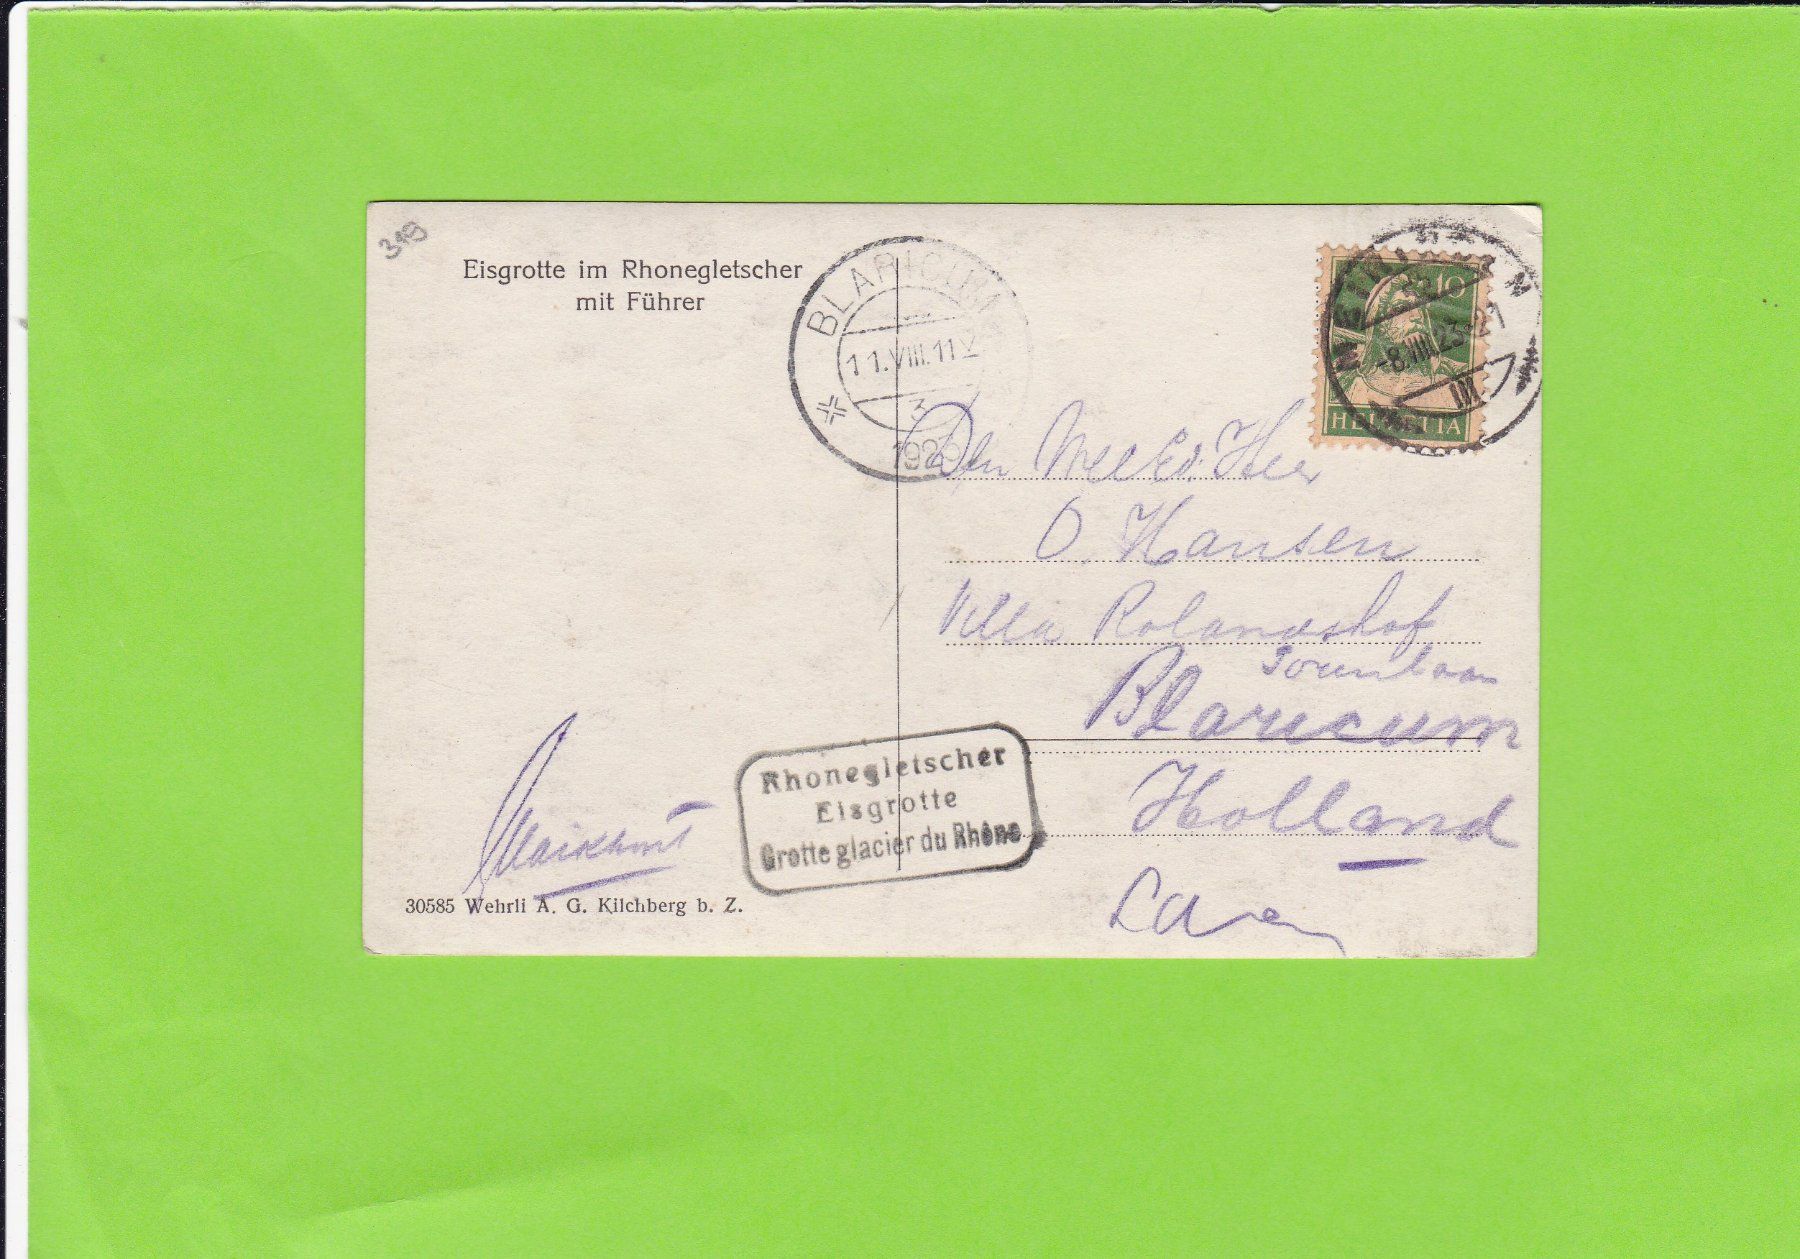 319
Eisgrotte im Rhonegletscher
mit Führer
BLARICUM
11.VIII.11V
3
192
10
HELVETIA
-8.VIII.23-2
III
Den WelEd. Heer
O. Hansen
Villa Rolandshof
Blaricum
Holland
Laren
Rhonegletscher
Eisgrotte
Grotte glacier du Rhône
30585 Wehrli A. G. Kilchberg b. Z.